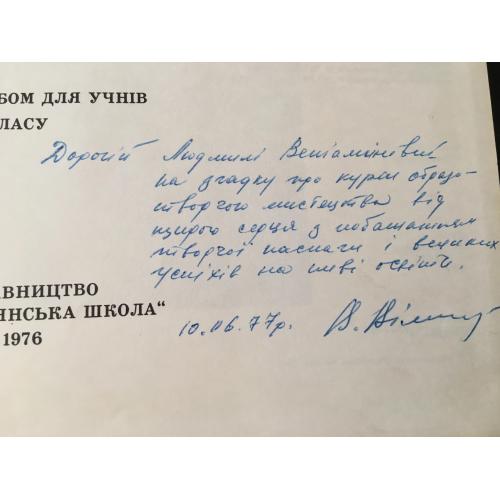 БОМ ДЛЯ УЧНІВ
ЛАСУ
Дорогій Людмилі Веніамінівні
на згадку про курси образо-
творчого мистецтва від
щирого серця з побажанням
творчої наснаги і великих
успіхів на ниві освіти.
АВНИЦТВО
ЯНСЬКА ШКОЛА"
1976
10.ІІІ.77р. В.